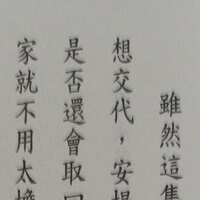 雖然這集
想交代，安
是否還會取
家就不用太